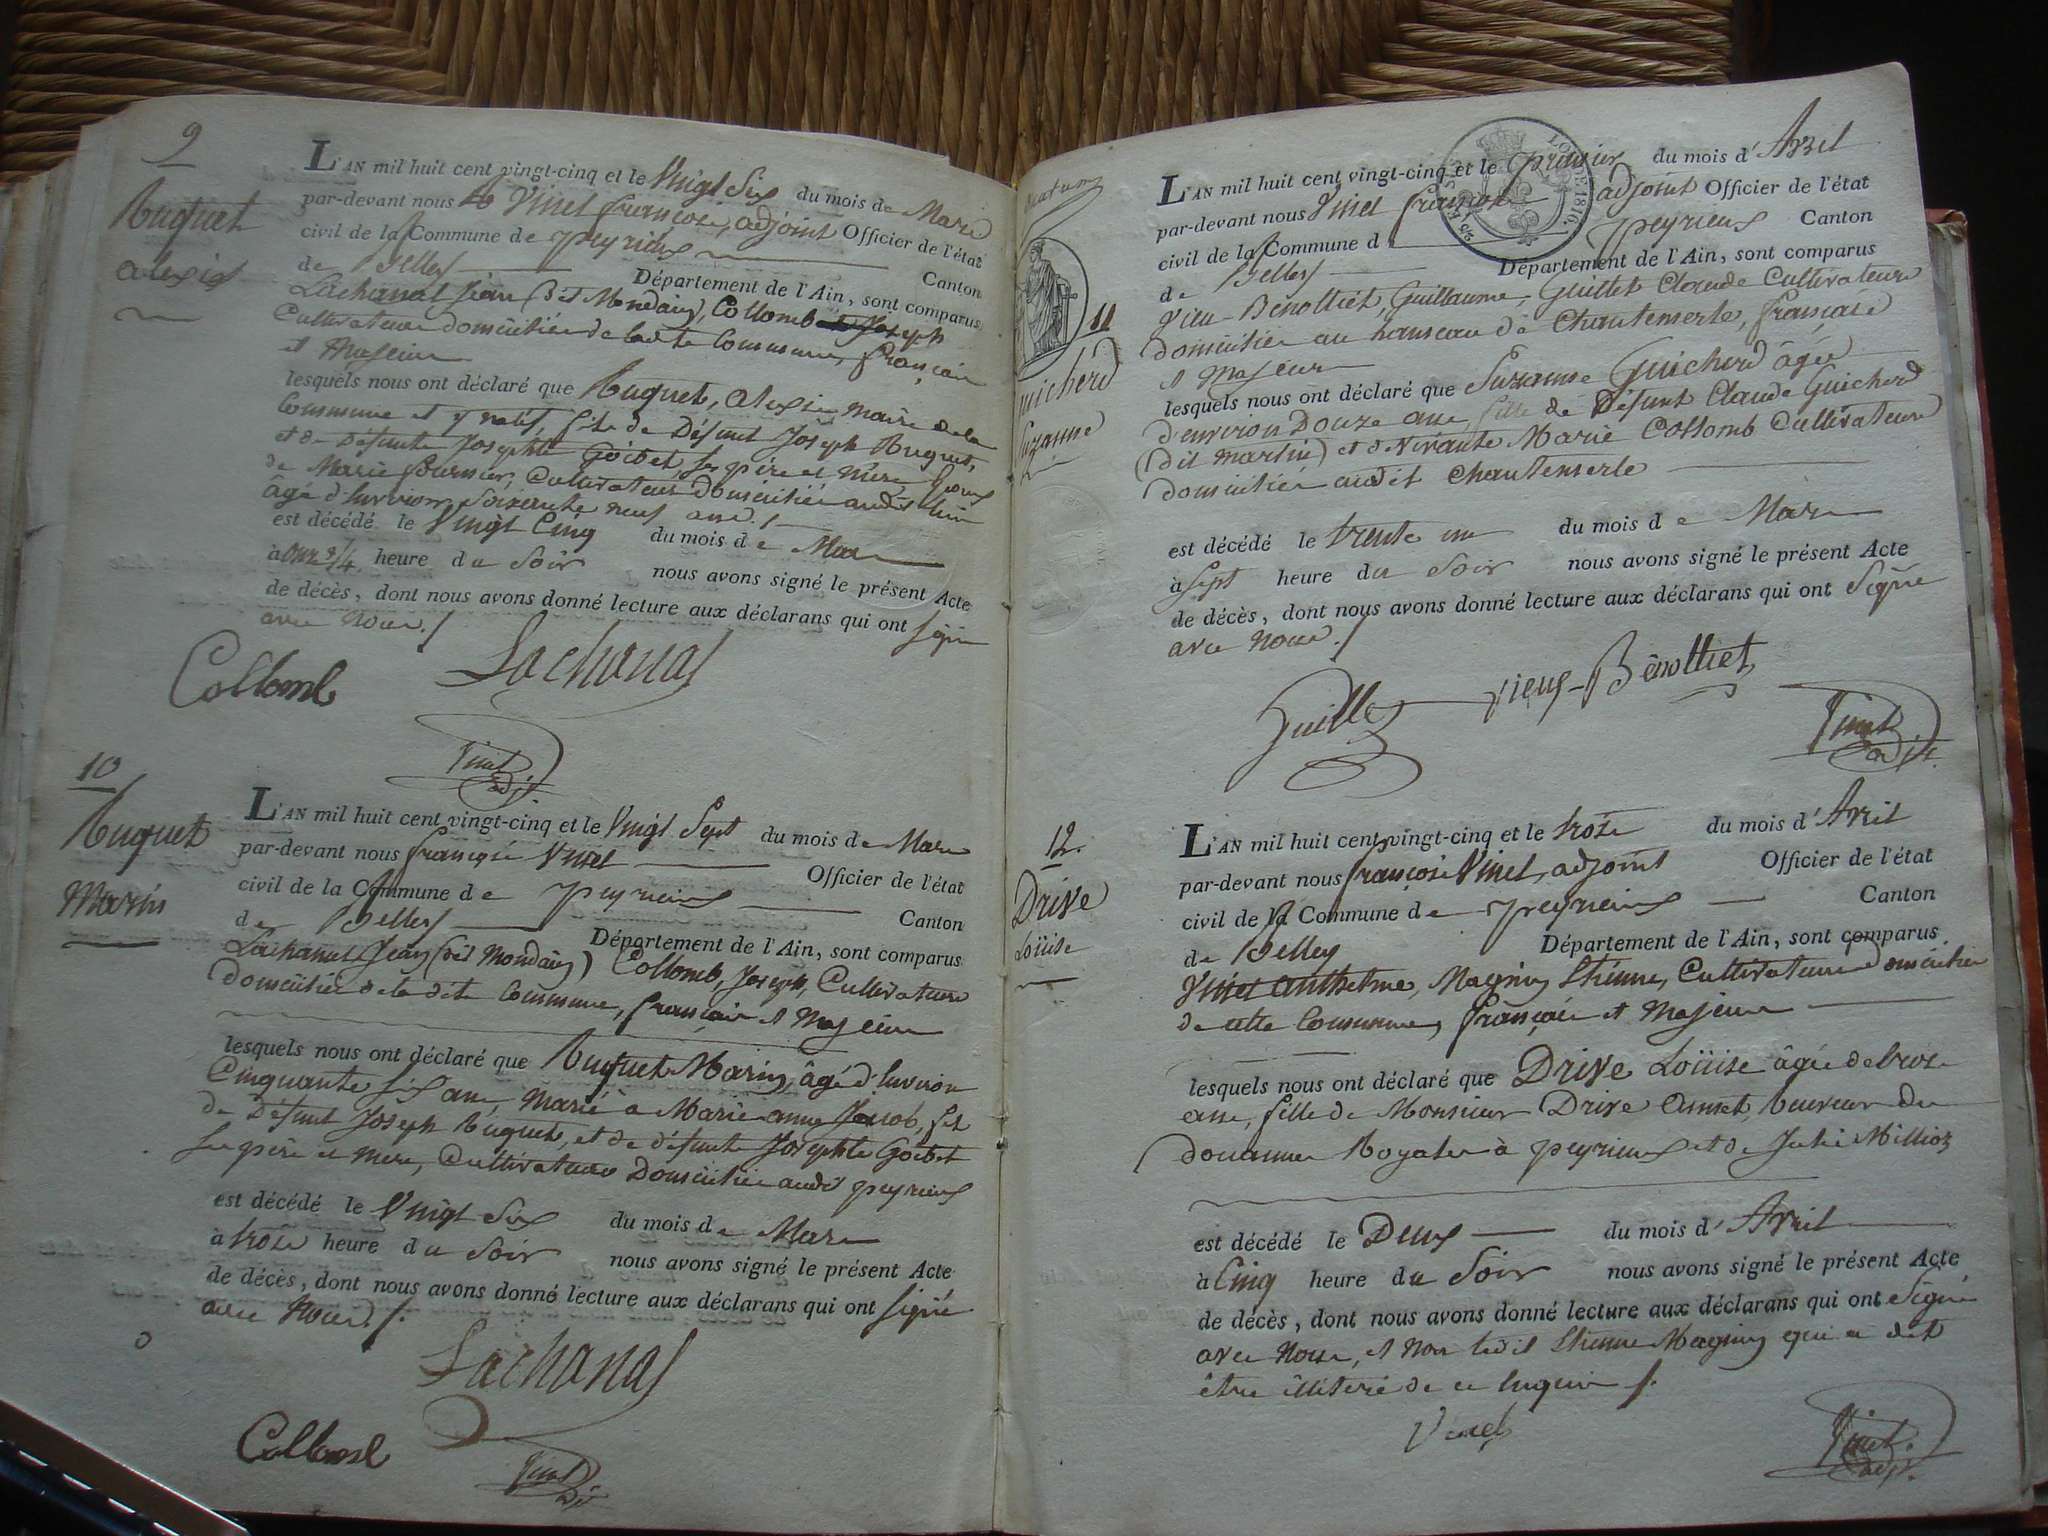 9
Ruquet
alexis
L'AN mil huit cent vingt-cinq et le Vingt Six du mois de Mars
par-devant nous Vinet françois, adjoint Officier de l'état
civil de la Commune de peyrieux Canton
de Belley Département de l'Ain, sont comparus
Lachanal Jean (dit Mondain), Collomb Joseph
Cultivateurs domiciliés de ladite Commune, français
et Majeurs
lesquels nous ont déclaré que Ruquet, alexis maire de la
Commune et y natif, fils de Défunt Joseph Ruquet,
et de Défunte Josephte Goibet, ses père et mère
de Marie fournier, Cultivateur domicilié audit lieu
âgé d'Environ Soixante neuf ans ./.
est décédé le Vingt Cinq du mois de Mars
à onze 3/4 heure du Soir nous avons signé le présent Acte
de décès, dont nous avons donné lecture aux déclarans qui ont signé
avec Nous ./
Collomb Lachanal
Vinet
adjt.
10
Ruquet
Marin
L'AN mil huit cent vingt-cinq et le Vingt Sept du mois de Mars
par-devant nous françois Vinet Officier de l'état
civil de la Commune de peyrieux Canton
de Belley Département de l'Ain, sont comparus
Lachanal Jean (dit Mondain) Collomb, Joseph, Cultivateurs
domiciliés de la dite Commune, français et Majeurs
lesquels nous ont déclaré que Ruquet Marin, âgé d'Environ
Cinquante Six ans, Marié à Marie anne Jacob, fils
de Défunt Joseph Ruquet, et de défunte Josephte Goibet
ses père et mère, Cultivateurs Domiciliés audit peyrieux
est décédé le Vingt Six du mois de Mars
à trois heure du Soir nous avons signé le présent Acte
de décès, dont nous avons donné lecture aux déclarans qui ont signé
avec Nous ./.
Lachanal
Collomb Vinet
adjt
11
Guicherd
Suzanne
L'AN mil huit cent vingt-cinq et le premier du mois d'Avril
par-devant nous Vinet françois adjoint Officier de l'état
civil de la Commune d peyrieux Canton
de Belley Département de l'Ain, sont comparus
Vieu-Benolliet, Guillaume, Guillet Claude Cultivateurs
domiciliés au hameau de Chantemerle, français
et Majeurs
lesquels nous ont déclaré que Suzanne Guicherd âgée
d'environ Douze ans, fille de Défunt Claude Guicherd
(dit martin) et de Vivante Marie Collomb Cultivateurs
domiciliés audit Chantemerle
est décédé le trente un du mois de Mars
à Sept heure du Soir nous avons signé le présent Acte
de décès, dont nous avons donné lecture aux déclarans qui ont Signé
avec Nous ./
Guillet Vieux-Bènolliet
Vinet
adjt.
LOI DE 1816
12.
Drive
Loüise
L'AN mil huit cent vingt-cinq et le trois du mois d'Avril
par-devant nous françois Vinet, adjoint Officier de l'état
civil de la Commune de peyrieux Canton
de Belley Département de l'Ain, sont comparus
Vinet anthelme, Magnin Etienne, Cultivateurs domiciliés
de cette Commune, français et Majeurs
lesquels nous ont déclaré que Drive Loüise âgée de trois
ans, fille de Monsieur Drive Anset, Receveur des
douannes Royales à peyrieux et de Julie Millioz
est décédé le Deux du mois d'Avril
à Cinq heure du Soir nous avons signé le présent Acte
de décès, dont nous avons donné lecture aux déclarans qui ont Signé
avec Nous, et Non ledit Etienne Magnin qui a dit
être illiteré de ce Enquis ./.
Vinet
Vinet.
adjt.